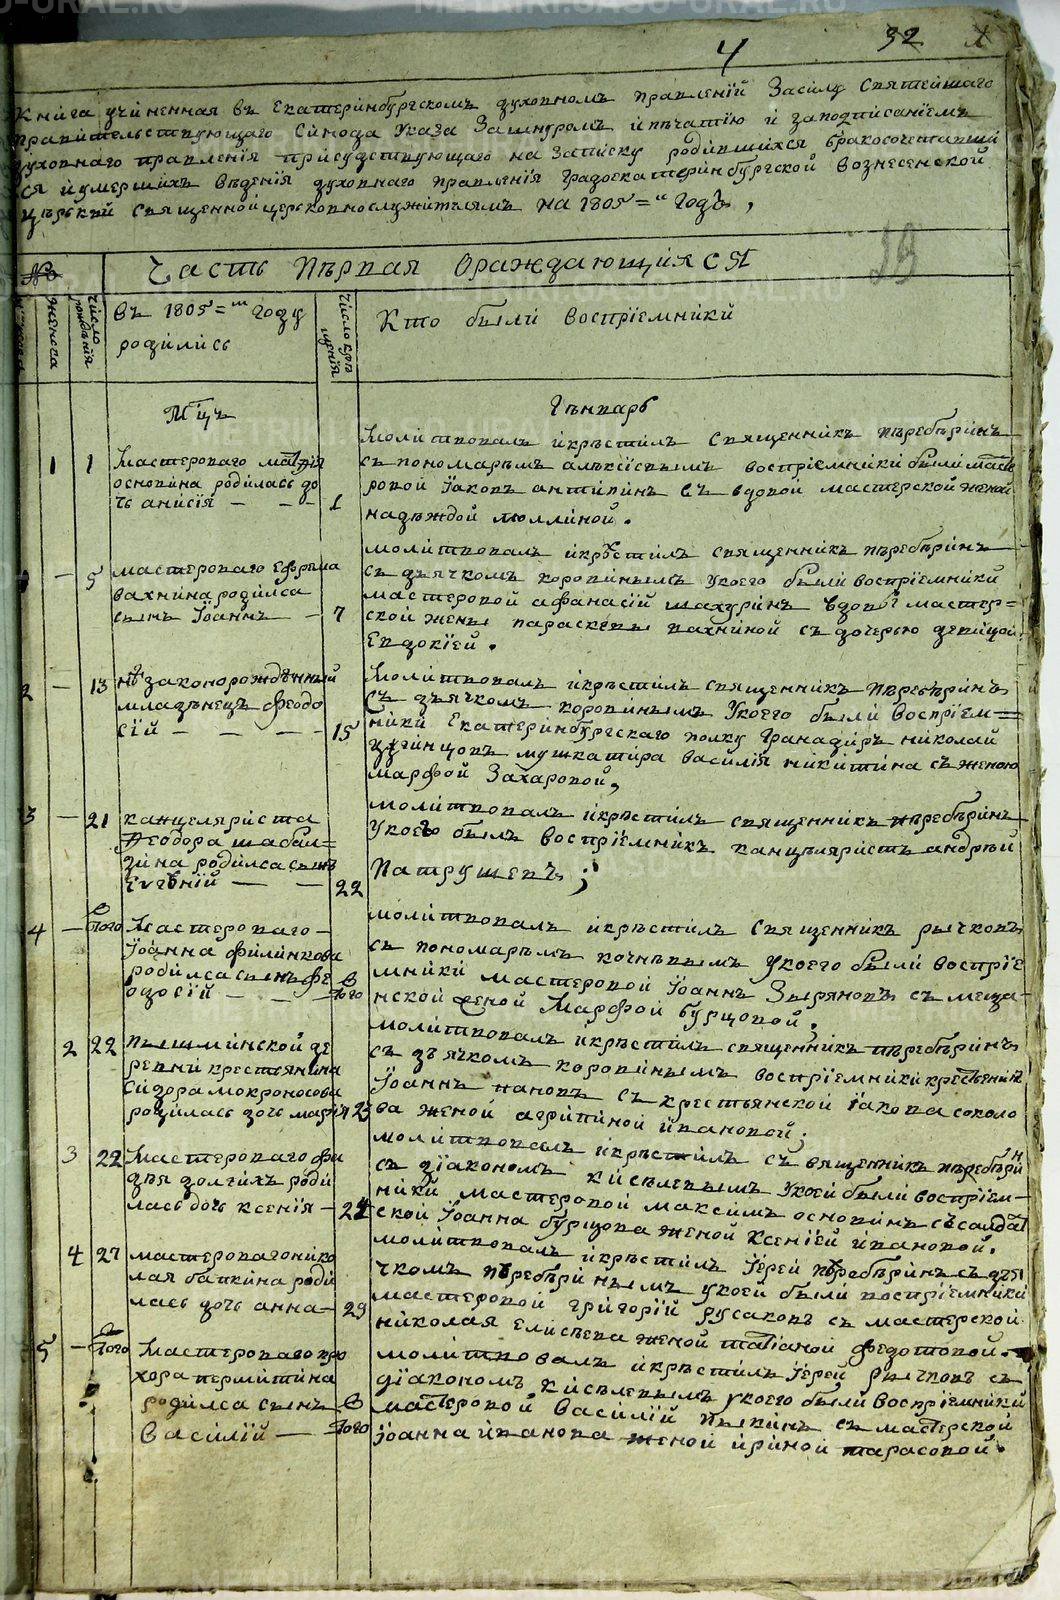 4
92
Книга учиненная въ Екатеринбургскомъ духовномъ правленiй Засилу Святейшаго
правительствующаго Синода Указа Зашнуромъ ипѣчатiю и заподписанiемъ
духовнаго правленiя присудствующаго на Записку родившихся бракосочетавши
ся иумершихъ вѣденiя духовнаго правленiя градоекатеринбургской вознесенской
цѣркви священноицерковнослужитѣлямъ на 1805=и годъ,
Часть Пѣрвая ораждающихся
39
женска
число рождѣнiя
въ 1805=м году
родились
число крѣщенiя
Кто были воспрiемники
Мцъ
Гѣнварь
1
1
Мастероваго матвѣя
основина родилась до
чь анисiя - - -
1
Молитвовалъ икрѣстилъ священникъ пѣребѣринъ
съ пономарѣмъ алѣксiевымъ воспрiемники были масте
ровой Iаковъ антипинъ съ вдовой мастерской женой
надѣждой мюллиной.
5
мастероваго Ефрема
вахнина родилса
сынъ Iоаннъ -
7
молитвовалъ икрѣстилъ священникъ пѣребѣринъ
съ дьячкомъ коровинымъ укоего были воспрiемники
мастеровой афанасiй шахуринъ вдовы мастер=
ской жены параскевы вахниной съ дочерью девицой
Евдокiей.
2
13
нѣзаконорождѣнный
младѣнецъ феодо
сiй - - - -
15
Молитвовалъ икрѣстилъ священникъ пѣребѣринъ
съ дьячкомъ коровинымъ укоего были воспрiем=
ники Екатеринбургскаго полку гранадиръ николай
мушкатира василiя никитина съ женою
марфой Захаровой,
3
21
канцеляриста
Феодора шабал=
зина родилса сынъ
Евгѣнiй - -
22
молитвовалъ икрѣстилъ священникъ пѣребѣринъ
укоего былъ воспрiемникъ канцѣляристъ андрѣй
Патрушевъ;
4
того
Мастероваго -
Iоанна филинкова
родилса сынъ фе
одосiй - - -
того
молитвовалъ икрѣстилъ священникъ рычковъ
съ пономарѣмъ кочнѣвымъ укоего были воспрiе
мники мастеровой Iоаннъ Зыряновъ съ меща-
нской женой Марфой бурцовой,
2
22
пышминской де
ревни крестянина
Сидора мокроносова
родилась дочь марiя
23
молитвовалъ икрѣстилъ священникъ пѣребѣринъ
съ дьячкомъ коровинымъ воспрiемники крестьенинъ
Iоаннъ пановъ съ крестьянской iакова соколо
ва женой агрипиной ивановой;
3
22
Мастероваго фи
дѣя долгихъ роди
лась дочь ксенiя -
24
молитвовалъ икрѣстилъ священникъ пѣребѣрин
съ дiакономъ кисѣлевымъ укоей были воспрiем-
ники мастеровой максимъ основинъ съ салдат
ской Iоанна бурцова женой Ксенiей ивановой.
4
27
мастероваго нико
лая бапкина роди
лась дочь анна -
29
молитвовалъ икрѣстилъ Iерей пѣребѣринъ съ дья
чкомъ пѣребѣринымъ укоей были воспрiемники
мастеровой григорiй русаковъ съ мастерской
николая елисѣева женой татiаной федотовой.
5
того
Мастероваго про
хора пермитина
родилса сынъ
Василiй -
того
молитвовалъ икрѣстилъ Iерей рычковъ съ
дiакономъ кисѣлевымъ укоего были воспрiемники
мастеровой Василiй пыпинъ съ мастерской
Iоанна иванова женой ириной тарасовой.